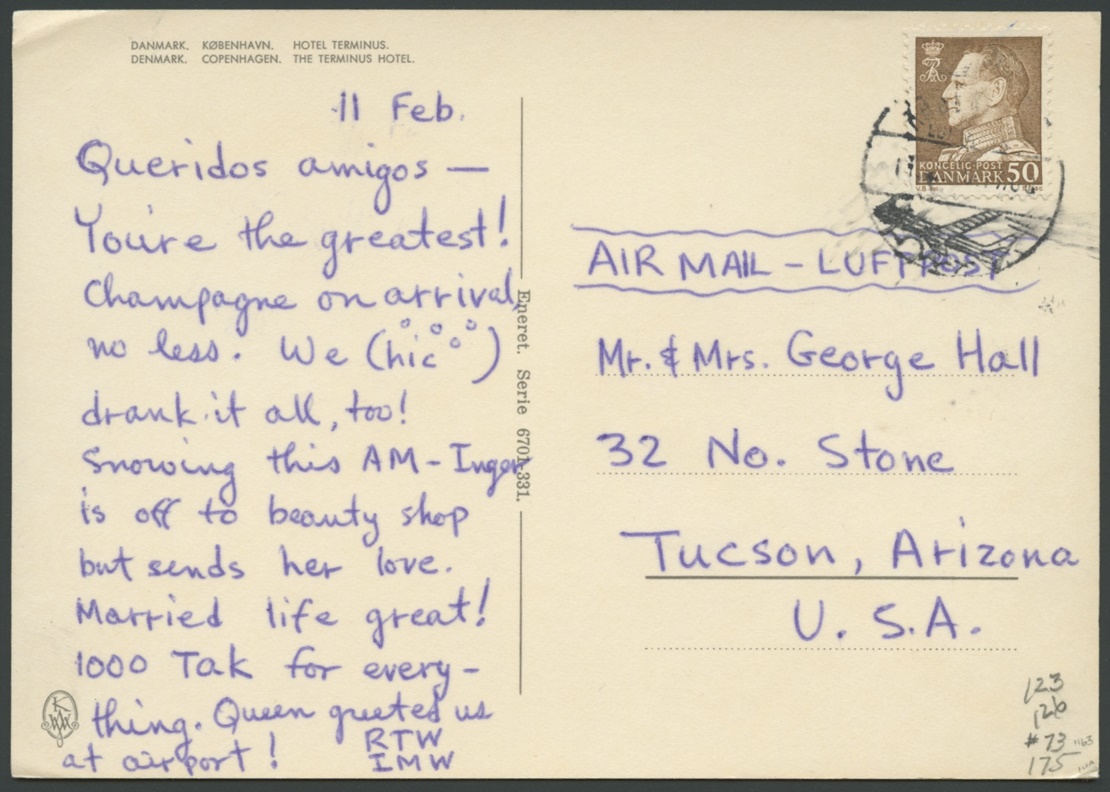 DANMARK. KØBENHAVN. HOTEL TERMINUS.
DENMARK. COPENHAGEN. THE TERMINUS HOTEL.
11 Feb.
Queridos amigos —
You're the greatest!
Champagne on arrival,
no less. We (hic)
drank it all, too!
Snowing this AM - Inger
is off to beauty shop
but sends her love.
Married life great!
1000 Tak for every-
thing. Queen greeted us
at airport!
RTW
IMW
Eneret. Serie 6701-331.
KONGELIG POST
DANMARK 50
AIR MAIL - LUFTPOST
Mr. & Mrs. George Hall
32 No. Stone
Tucson, Arizona
U. S. A.
123
126
#73
175